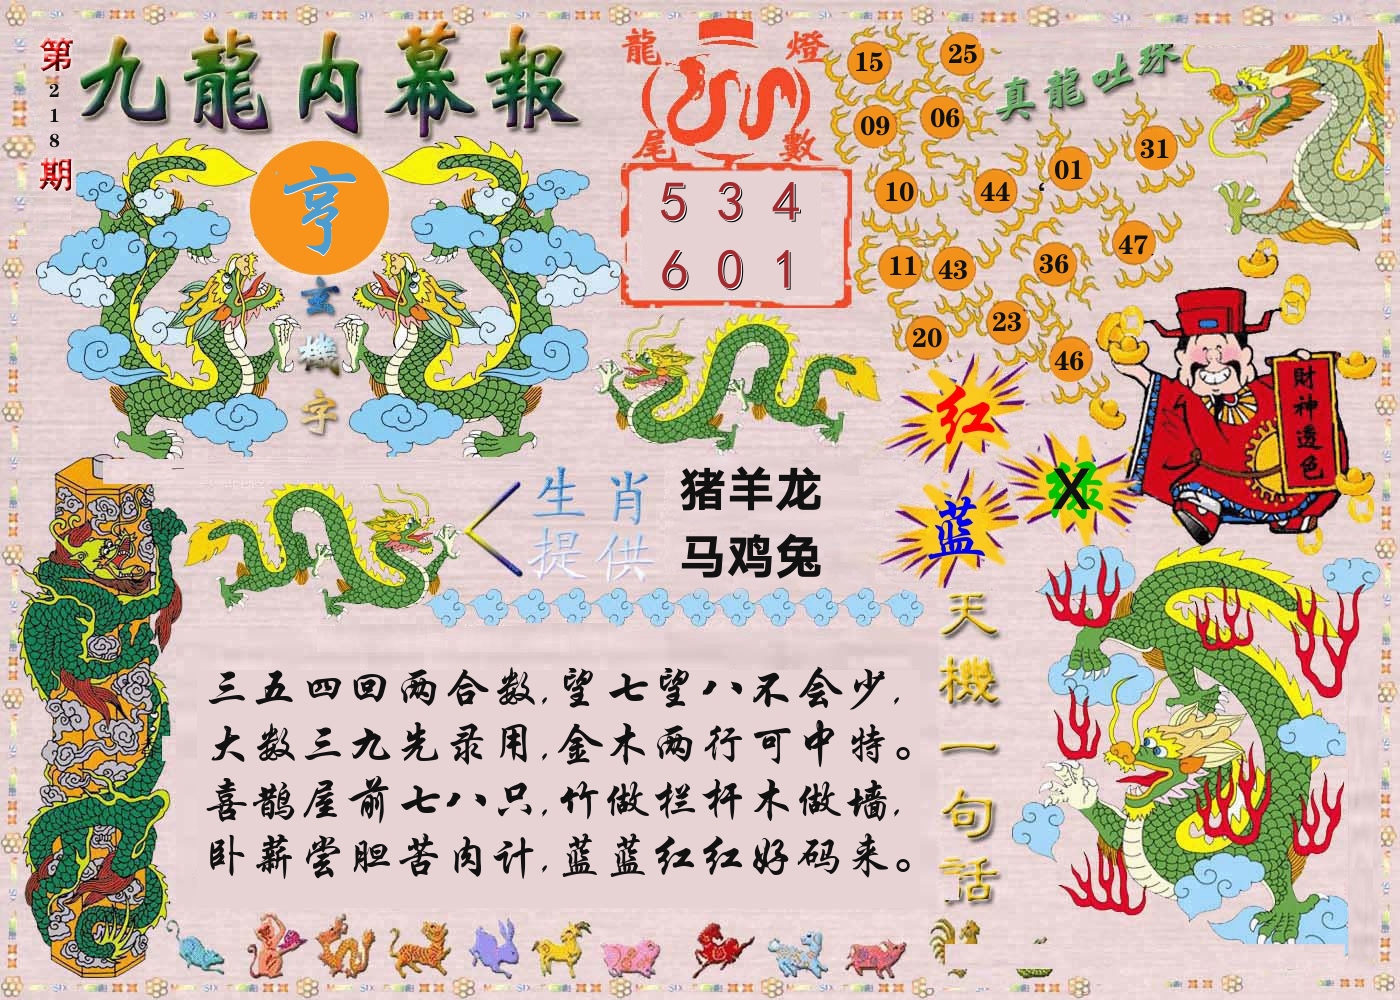 第218期
九龍内幕報
亨
玄機字
龍燈
尾數
5 3 4
6 0 1
真龍吐珠
15
25
09
06
01
31
10
44
11
43
36
47
20
23
46
財神透色
红
绿
X
蓝
生肖
提供
猪羊龙
马鸡兔
天機一句話
三五四回两合数,望七望八不会少,
大数三九先录用,金木两行可中特。
喜鹊屋前七八只,竹做栏杆木做墙,
卧薪尝胆苦肉计,蓝蓝红红好码来。